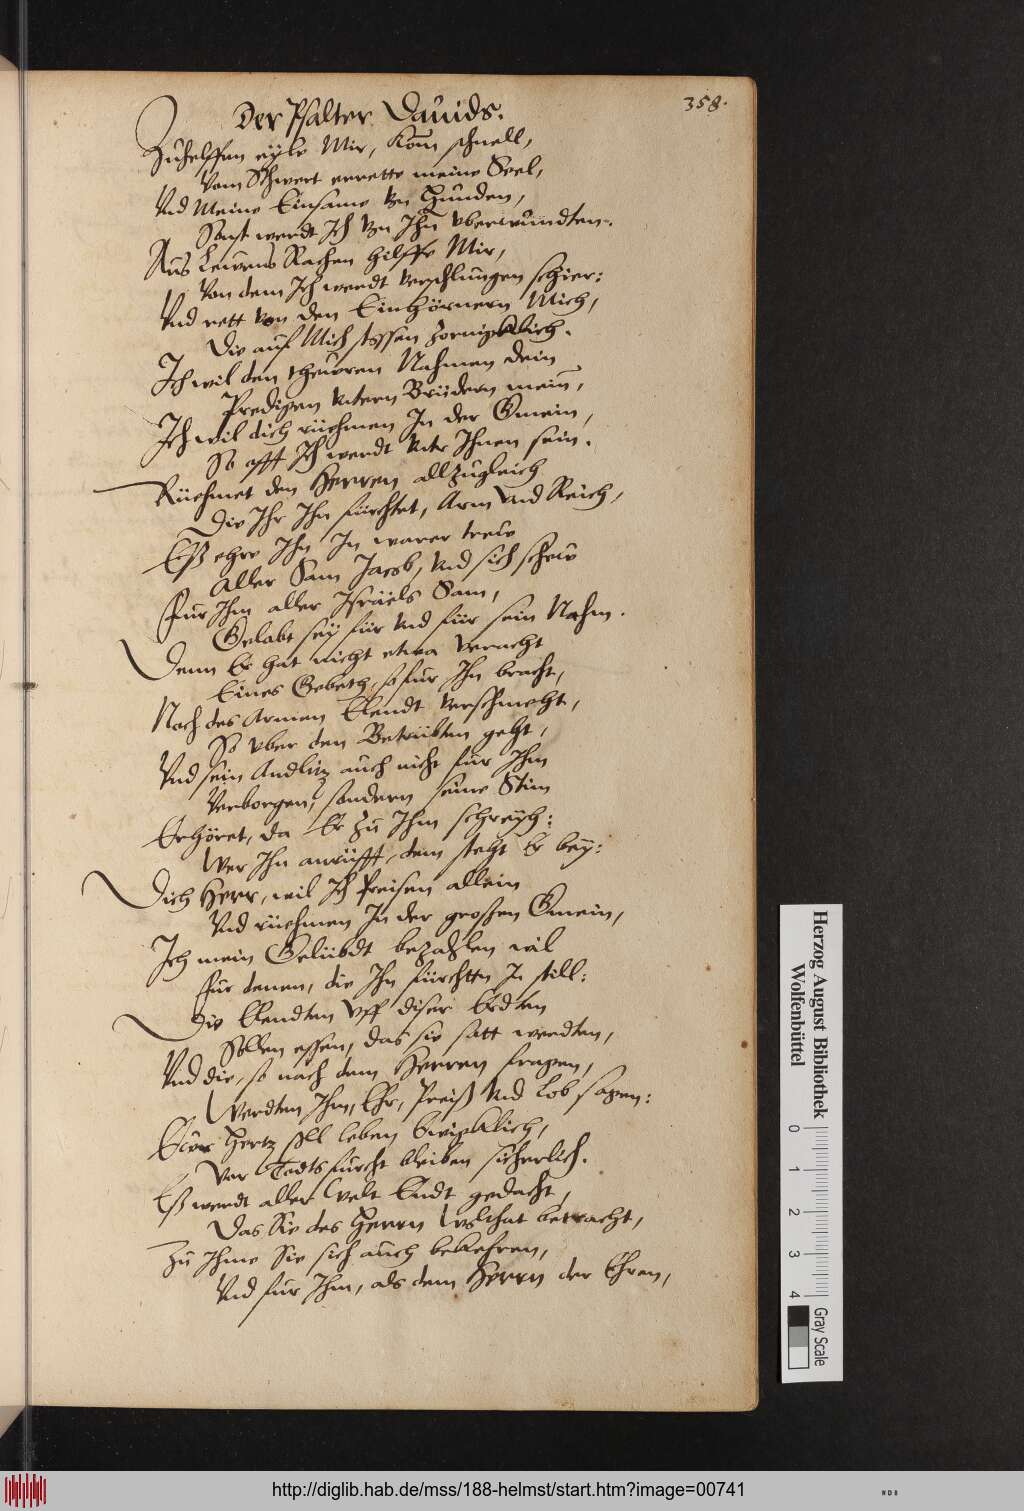 Der Psalter Dauids.
358.
Zuhelffen eyle Mir, Kom schnell,
Vom Schwert errette meine Seel,
Vnd Meine Einsame Von Hunden,
Sonst werdt Ich Von Ihn Vberwundten.
Aus Lewens Rachen hilffe Mir,
Von dem Ich werdt Verschlungen schier:
Vnd rett Von den Einhörnern Mich,
Die auf Mich stossen zornigklich.
Ich wil den theuren Nahmen dein
Predigen Vntern Brüdern mein,
Ich wil dich rüehmen In der Gmein,
So offt Ich werdt Vntr Ihnen sein.
Rüehmet den Herren allzugleich
Die Ihr Ihn fürchtet, Arm Vnd Reich,
Eß ehre Ihn In warer trew
Aller Sam Jacob, Vnd sich schew
Fur Ihm aller Israëls Sam,
Gelabt sey für Vnd für sein Nahm.
Denn Er hat nicht etwa Veracht
Eines Gebeth, so fur Ihn bracht,
Noch des Armen Elendt Verschmeht,
So Vber den Betrübten geht,
Vnd sein Andlitz auch nicht für Ihm
Verborgen, sondern seine Stim
Erhöret, da Er zu Ihm schreyh:
Wer Ihn anrüfft, dem steht Er bey:
Dich Herr, wil Ich Preisen allein
Vnd rüehmen In der grossen Gmein,
Ich mein Gelübdt bezahlen wil
Fur denen, die Ihn fürchtn In still:
Die Elendten Vff diser Erdten
Sollen essen, das sie satt werdten,
Vnd die, so nach dem Herren fragen,
Werdten Ihm, Ehr, Preiß Vnd Lob sagen:
Ewer Hertz soll leben Ewigklich,
Vor Todts furcht bleiben sicherlich.
Eß werdt aller Welt Endt gedacht,
Das Sie des Herrn Wolthat betracht,
Zu Ihme Sie sich auch bekehren,
Vnd fur Ihm, als dem Herrn der Ehren,
Herzog August Bibliothek
Wolfenbüttel
0 1 2 3 4
Gray Scale
http://diglib.hab.de/mss/188-helmst/start.htm?image=00741